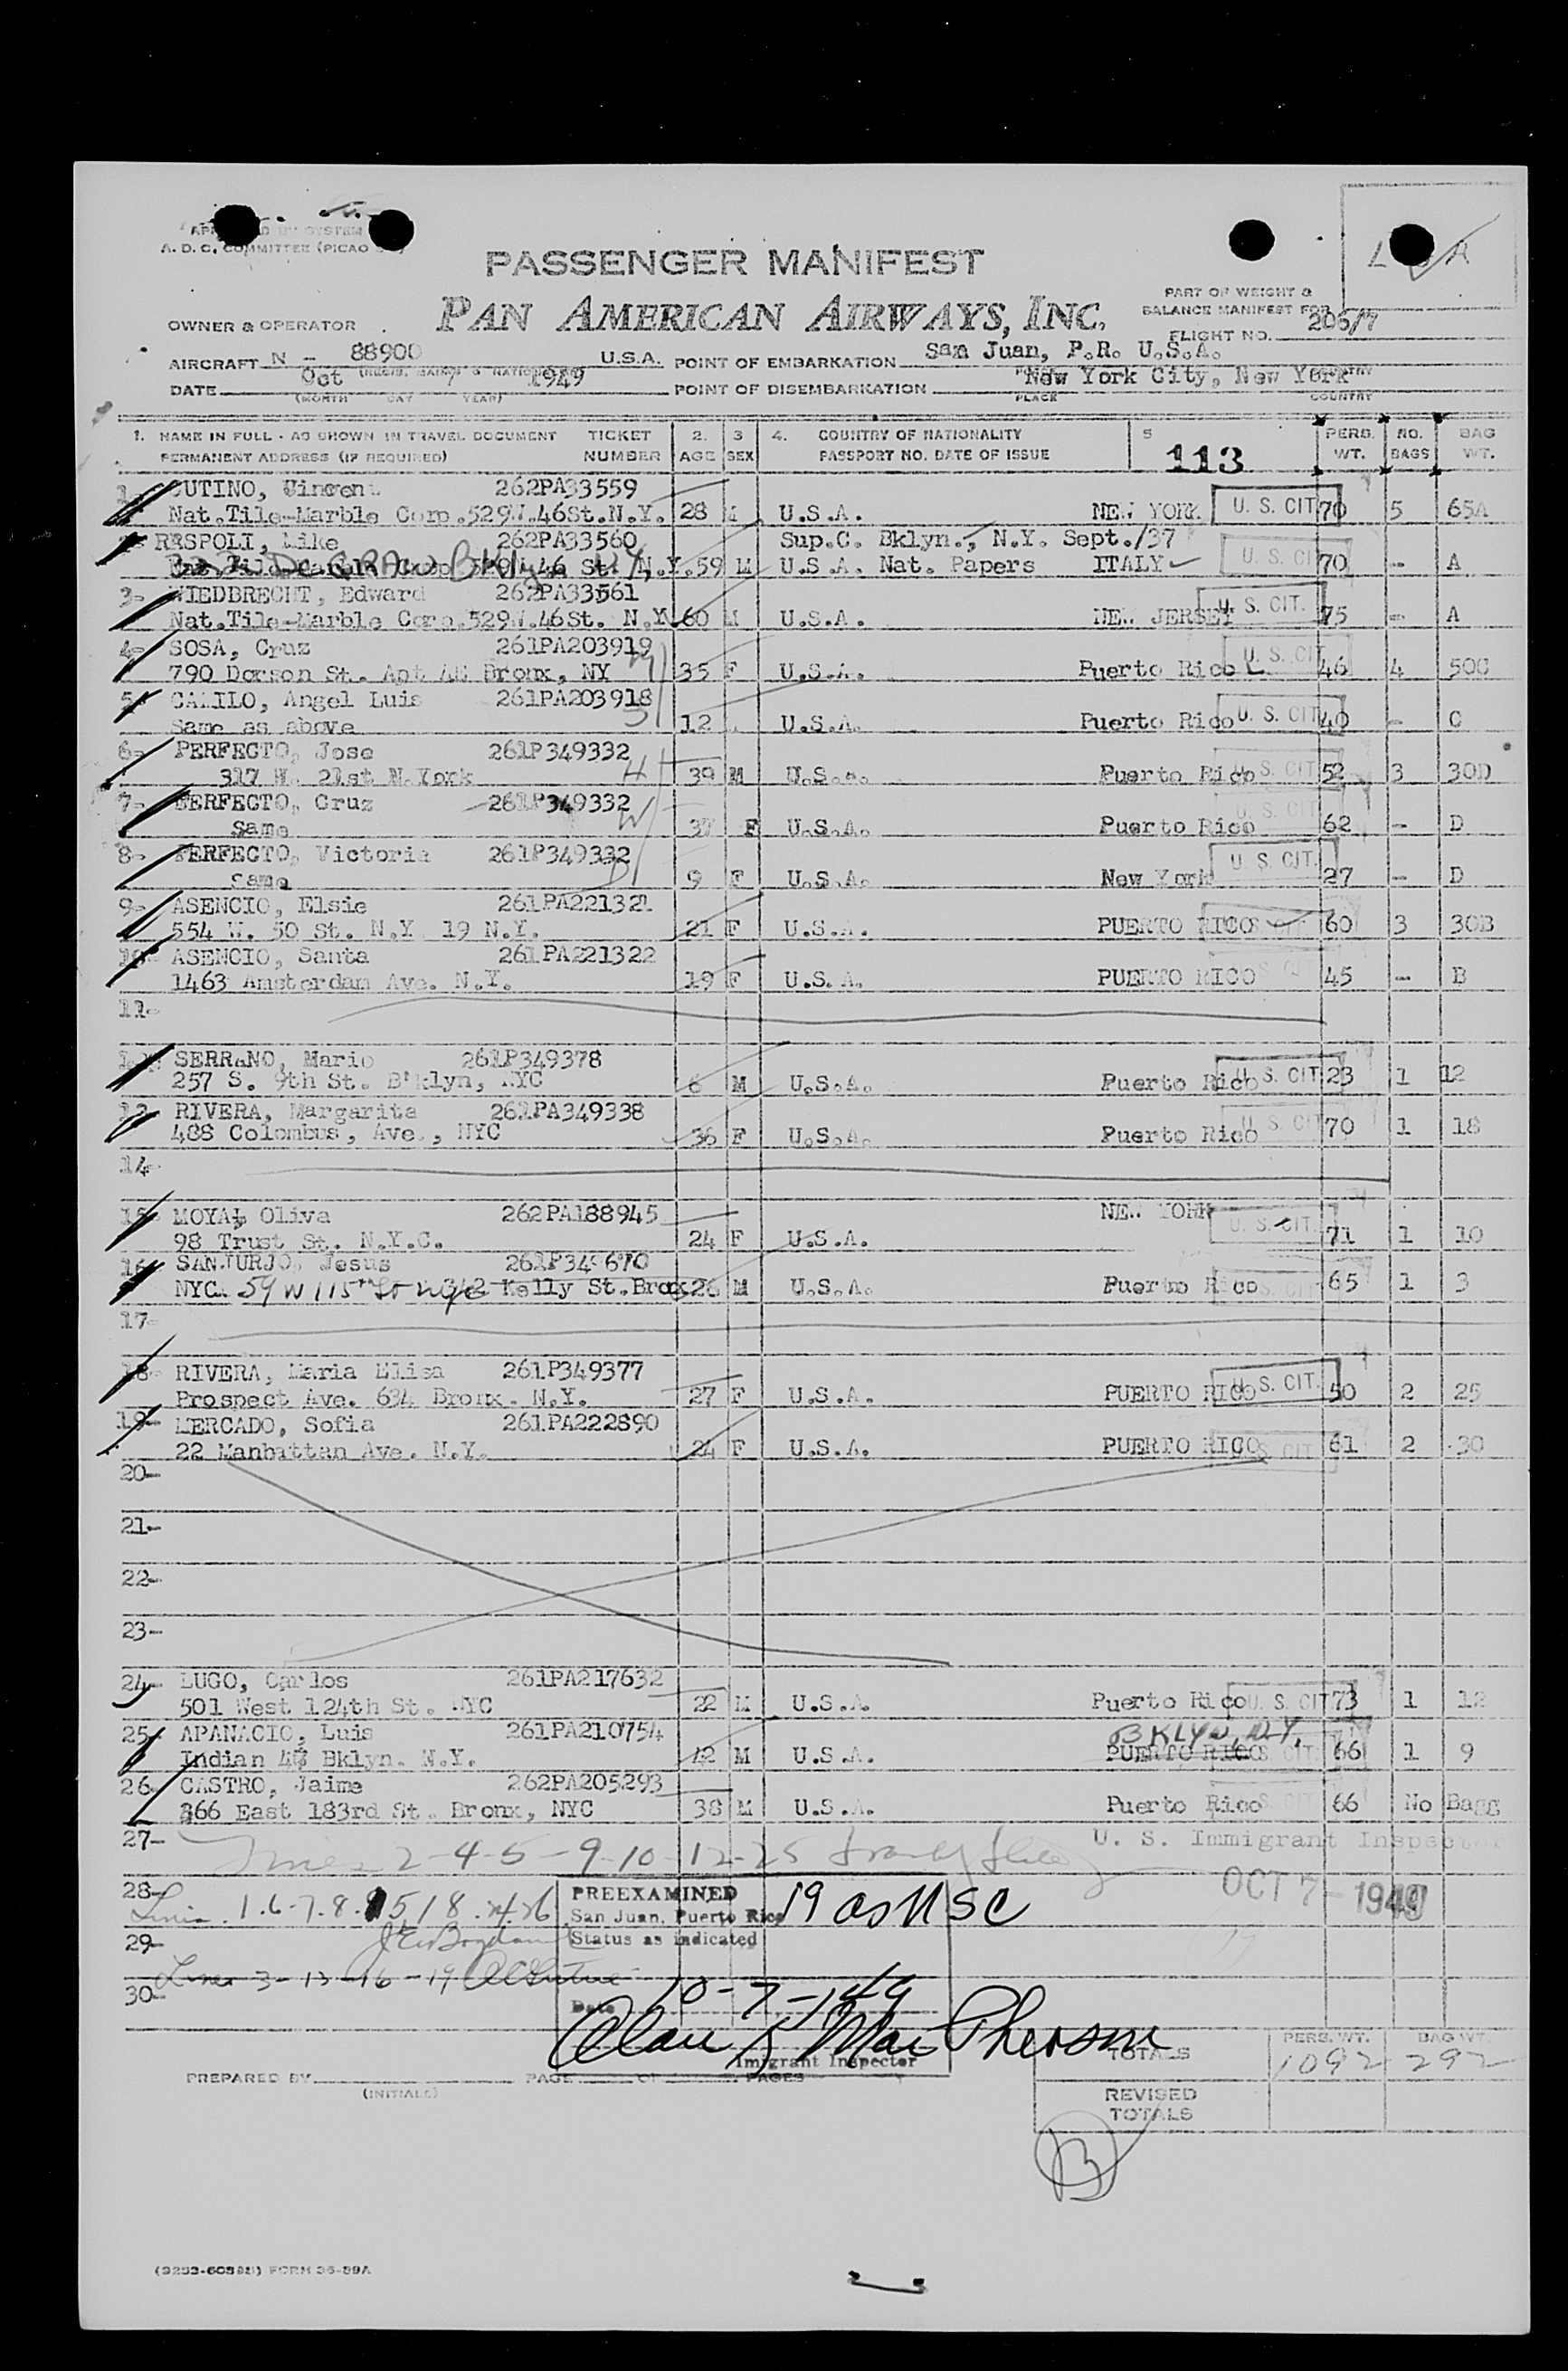 A. D. C. COMMITTEE (PICAO
PASSENGER MANIFEST
PAN AMERICAN AIRWAYS, INC.
PART OF WEIGHT &
BALANCE MANIFEST FOR
OWNER & OPERATOR
FLIGHT NO. 206/7
AIRCRAFT N - 88900 U.S.A. POINT OF EMBARKATION San Juan, P.R. U.S.A.
DATE Oct 7 1949 POINT OF DISEMBARKATION New York City, New York
(MONTH DAY YEAR) PLACE COUNTRY
1. NAME IN FULL - AS SHOWN IN TRAVEL DOCUMENT TICKET 2. 3 4. COUNTRY OF NATIONALITY 5 113 PERS. NO. BAG
PERMANENT ADDRESS (IF REQUIRED) NUMBER AGE SEX PASSPORT NO. DATE OF ISSUE WT. BAGS WT.
1- CUTINO, Vincent 262PA33559
Nat.Tile-Marble Corp.529W.46St.N.Y. 28 M U.S.A. NEW YORK U. S. CIT. 70 5 65A
RESPOLI, Mike 262PA33560 Sup.C. Bklyn., N.Y. Sept./37
DeGRAW BKlyn N.Y. 59 M U.S.A. Nat. Papers ITALY U. S. CIT 70 - A
3- WIEDBRECHT, Edward 262PA33561
Nat.Tile-Marble Corp.529W.46St. N.Y. 60 M U.S.A. NEW JERSEY U. S. CIT. 75 - A
4- SOSA, Cruz 261PA203919
790 Dawson St. Apt Bronx, NY 35 F U.S.A. Puerto Rico U. S. CIT 46 4 50C
5- CAMILO, Angel Luis 261PA203918
Same as above 12 U.S.A. Puerto Rico U. S. CIT 40 - C
6- PERFECTO, Jose 261P349332
317 W. 21st N.York 39 M U.S.A. Puerto Rico U. S. CIT 52 3 30D
7- PERFECTO, Cruz 261P349332
Same 37 F U.S.A. Puerto Rico U. S. CIT 62 - D
8- PERFECTO, Victoria 261P349332
Same 9 F U.S.A. New York U. S. CIT. 27 - D
9- ASENCIO, Elsie 261PA221321
554 W. 50 St. N.Y. 19 N.Y. 21 F U.S.A. PUERTO RICO 60 3 30B
10- ASENCIO, Santa 261PA221322
1463 Amsterdam Ave. N.Y. 19 F U.S.A. PUERTO RICO 45 - B
11-
SERRANO, Mario 261P349378
257 S. 9th St. Bklyn, NYC 6 M U.S.A. Puerto Rico U. S. CIT 23 1 12
13- RIVERA, Margarita 261PA349338
488 Colombus, Ave., NYC 36 F U.S.A. Puerto Rico U. S. CIT 70 1 18
14-
15- MOYA, Oliva 262PA188945 NEW YORK
98 Trust St. N.Y.C. 24 F U.S.A. U. S. CIT. 71 1 10
16- SANJURJO, Jesus 261P349670
NYC. 59 W 115th St NYC Kelly St.Bronx 26 M U.S.A. Puerto Rico 65 1 3
17-
18- RIVERA, Maria Elisa 261P349377
Prospect Ave. 634 Bronx. N.Y. 27 F U.S.A. PUERTO RICO U. S. CIT. 50 2 25
19- MERCADO, Sofia 261PA222890
22 Manhattan Ave. N.Y. 24 F U.S.A. PUERTO RICO S. CIT 61 2 30
20-
21-
22-
23-
24- LUGO, Carlos 261PA217632
501 West 124th St. NYC 22 M U.S.A. Puerto Rico U. S. CIT 73 1 12
25- APANACIO, Luis 261PA210754 BKLYN, N.Y.
Indian 48 Bklyn. N.Y. 42 M U.S.A. PUERTO RICO 66 1 9
26- CASTRO, Jaime 262PA205293
366 East 183rd St. Bronx, NYC 38 M U.S.A. Puerto Rico 66 No Bagg
27- Lines 2-4-5-9-10-12-25 U. S. Immigrant Inspector
28- PREEXAMINED 19 as USC OCT 7 - 1949
San Juan, Puerto Rico
29- Status as indicated
Lines 3-13-16-19
30- Date 10-7-49
Alan S MacPherson
Immigrant Inspector
TOTALS PERS. WT. 1092 BAG WT. 292
PREPARED BY (INITIALS) PAGE OF PAGES
REVISED
TOTALS
B
FORM 36-99A